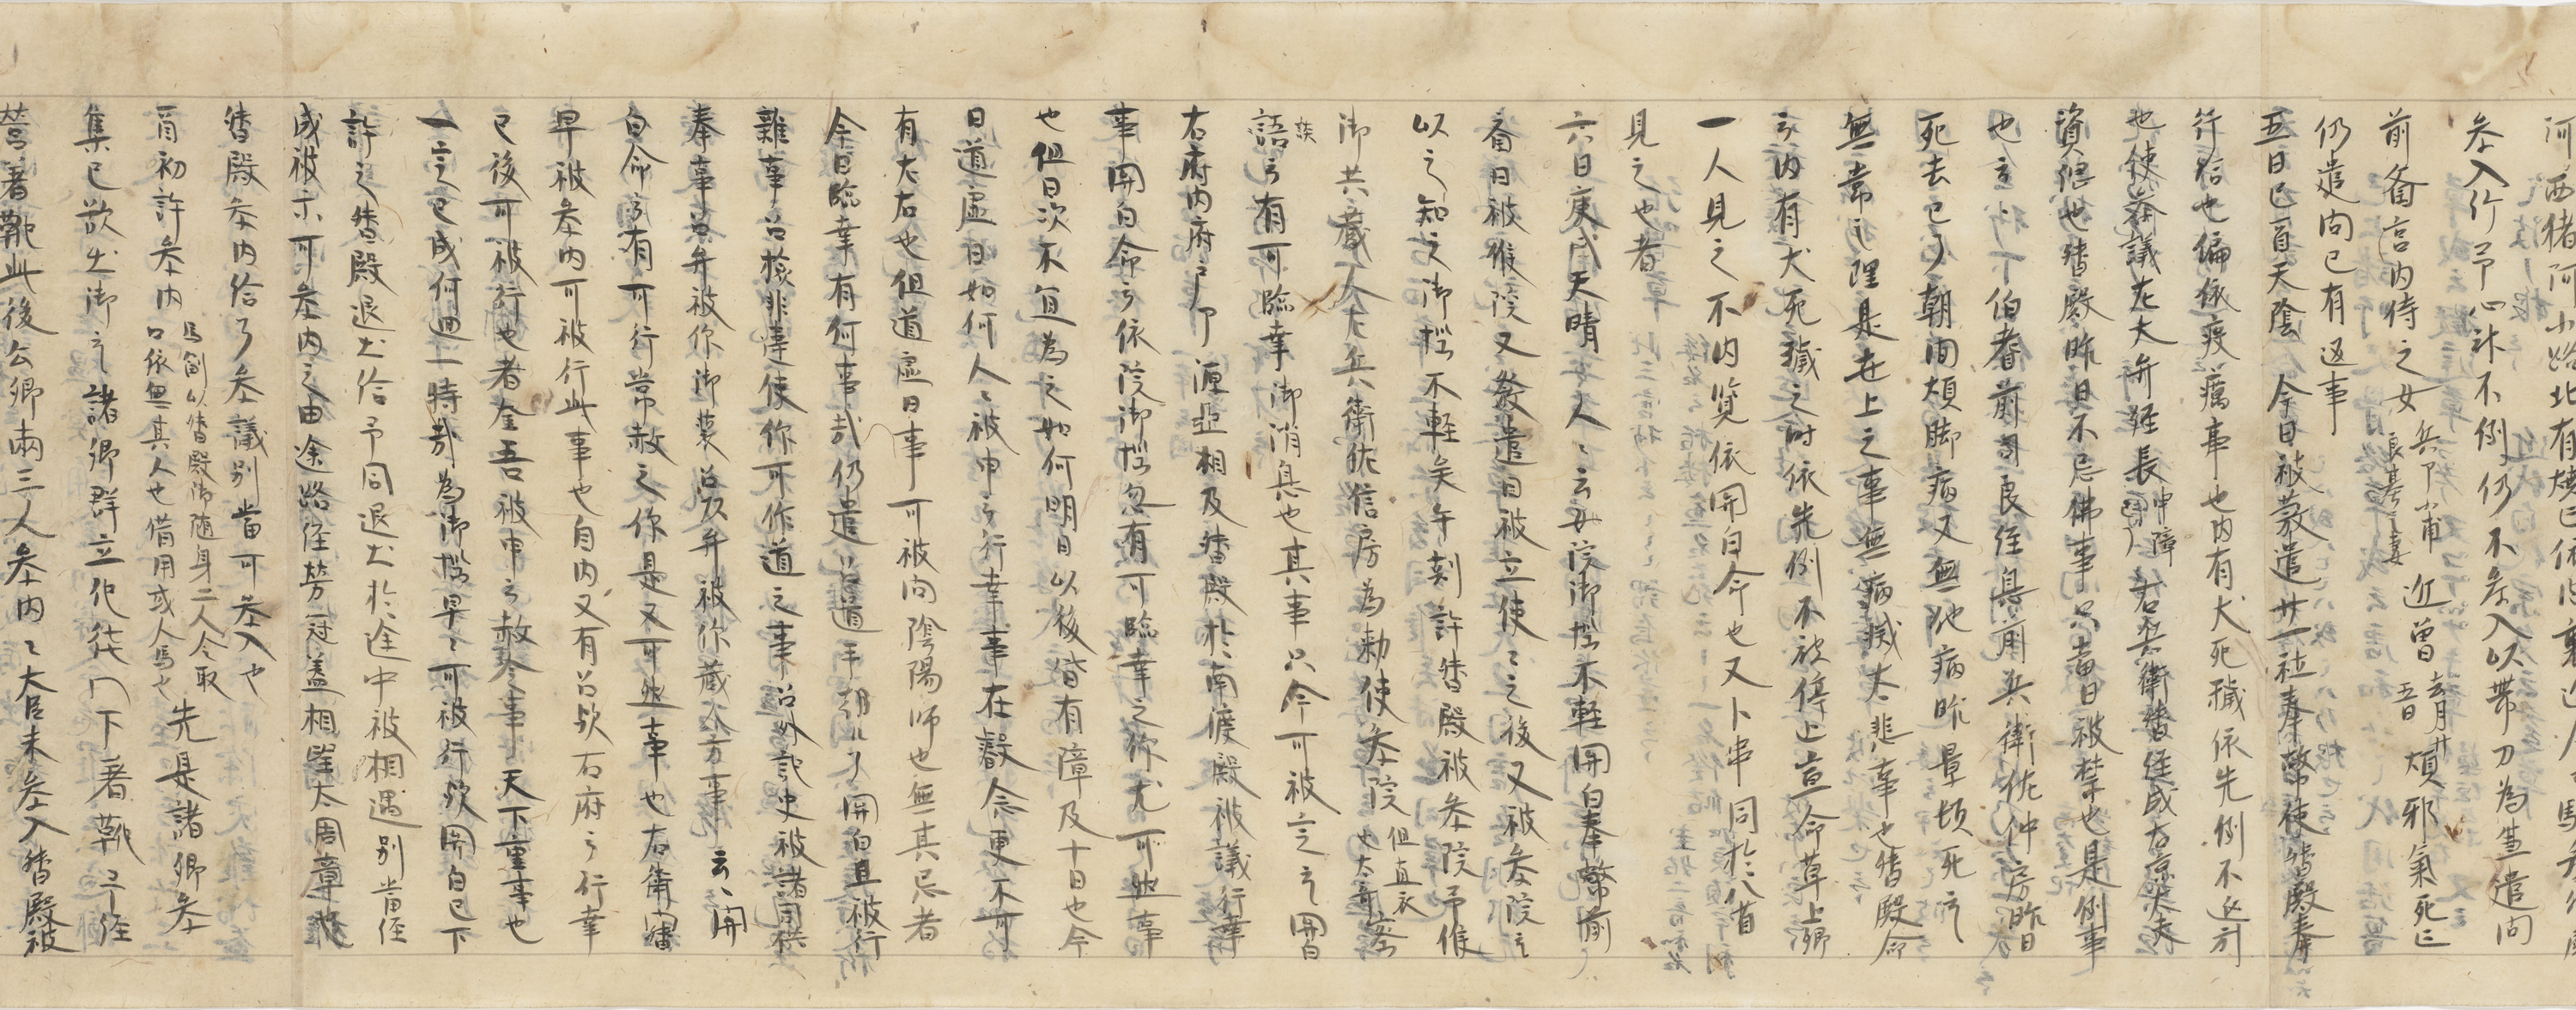 河西猪阿小路北有焼亡依
参入行予心神不例仍不参入以帯刀為生遣問
前斎宮内侍之女 兵部少甫 良基之妻 近曽 去月廿 五日 煩邪氣死亡
仍遣問已有返事
五日己酉天陰 今日被發遣廿一社奉幣使督殿奉
行給也偏依疫癘事也内有犬死穢依先例不返引
也使参議左大弁経長 申障 右兵衛督経成右京大夫
資綱也督殿昨日不忌佛事只當日被禁也是例事
也 下伯耆前司良経息前兵衛佐仲房昨日
死去已了朝間煩脚病又無他病昨暮頓死云
無常之理是世上之事無病滅尤悲事也督殿命
云内有犬死穢之時依先例不被停止宣命草上卿
一人見之不内覧依関白命也又卜串同於八省
見之也者
六日庚戌天晴人々云女院御悩不軽関白奉幣前
斎日被候院又發遣日被立使々之後又被参院云
以之知之御悩不軽矣午刻許督殿被参院予候
御共蔵人左兵衛佐信房為勅使参院 但直衣 也
語云有可臨幸御消息也其事只今可被定云關白
右府内府 源亞相及督殿於南渡殿被議行幸
事関白命云依院御悩忽有可臨幸之仰尤可然事
也但日次不宜為之如何明日以後皆有障及十日也今
日道虚日如何人々被申云行幸事在叡念更不可
有左右也但道虚日事可被問陰陽師也無其忌者
今日臨幸有何事哉仍遣召道平朝臣了関白且被行
雑事召検非違使仰可作道之事召外記史被諸司供
奉事召弁被仰御装召弁被仰蔵人方事云々関
白命云有可行常赦之仰是又可然事也右衛門督
早被参内可被行此事也自内又有召歟右府云行幸
已後可被行也者金吾被申云赦令事天下重事也
一定已成何廻一時哉為御悩早々可被行歟関白已下
許之督殿退出給予同退出於途中被相遇別當経
成被示可参内之由途路経営冠盖相望太周章也
督殿参内給了参議別當可参入也
酉初許参内 馬 以督殿御随身二人令取 口依無其人也借用或人馬也 先是諸卿参
集已欲出御云諸卿群立他徒門下著靴予経
営著靴此後公卿両三人参内々大臣未参入督殿被